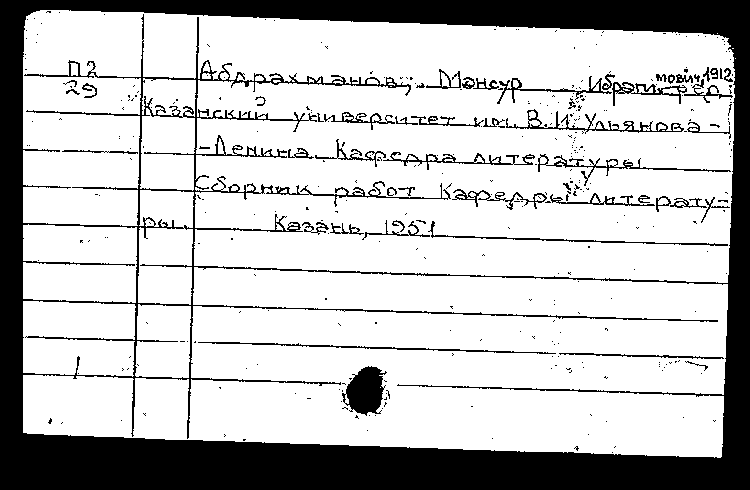 П2
29
Абдрахманов, Мансур Ибрагимович, 1912 ред.
Казанский университет им. В.И. Ульянова-
-Ленина. Кафедра литературы
Сборник работ Кафедры литерату-
ры. Казань, 1951
1